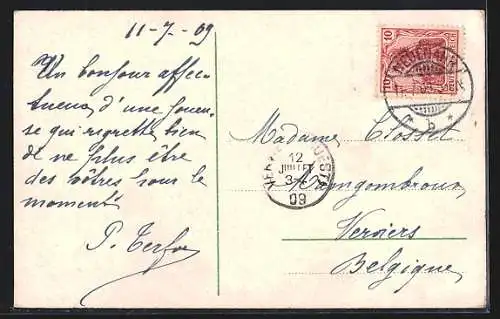 11-7-09
Un bonjour affec-
tueux d'une joueu-
se qui regrette bien
de ne plus être
des vôtres pour le
moment
Madame Closset
Verviers
Belgique
12
JUILLET
3-4
09
10
10